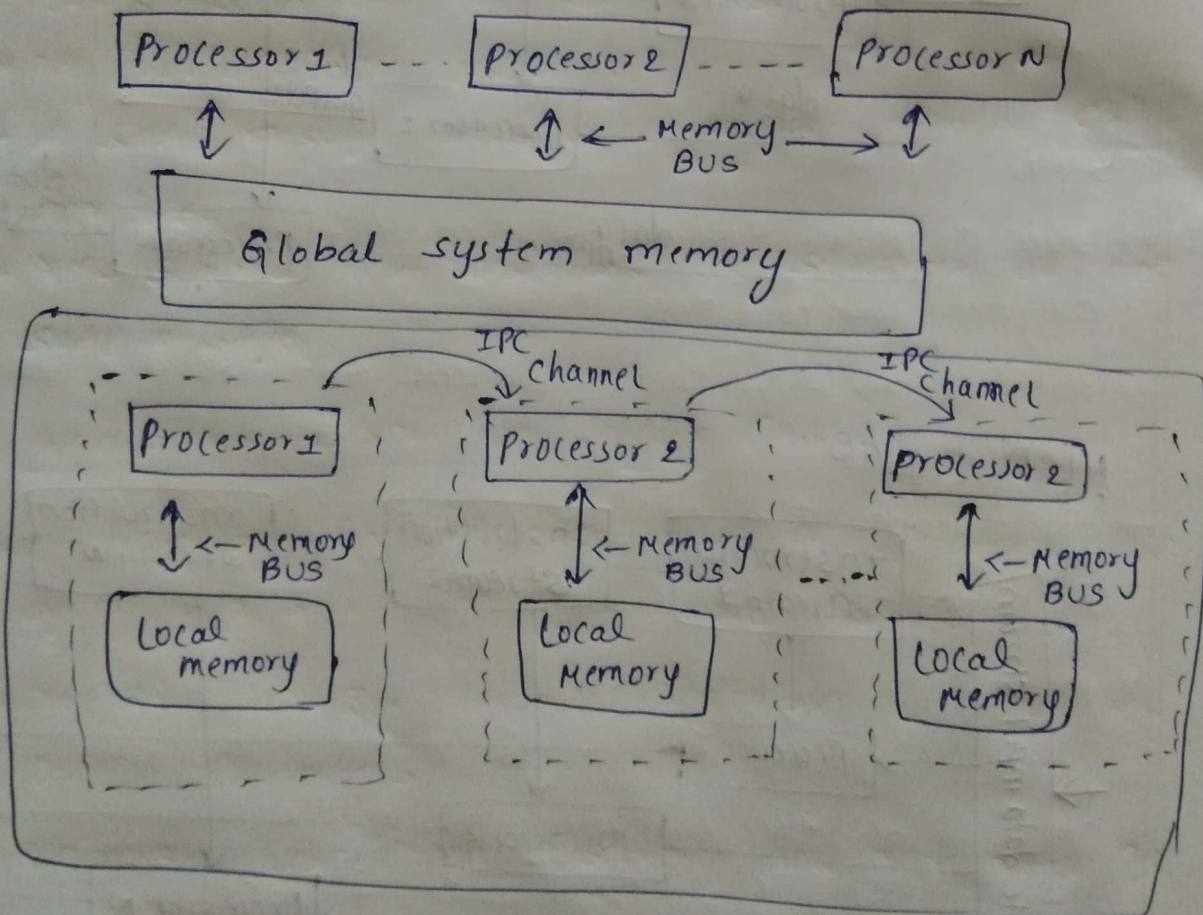 Processor 1
Processor 2
Processor N
Memory
BUS
Global system memory
IPC
Channel
IPC
Channel
Processor 1
Processor 2
Processor 2
Memory
BUS
Memory
BUS
Memory
BUS
Local
memory
Local
Memory
Local
Memory